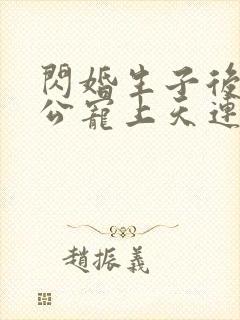 閃婚生子後
公寵上天連
趙振義